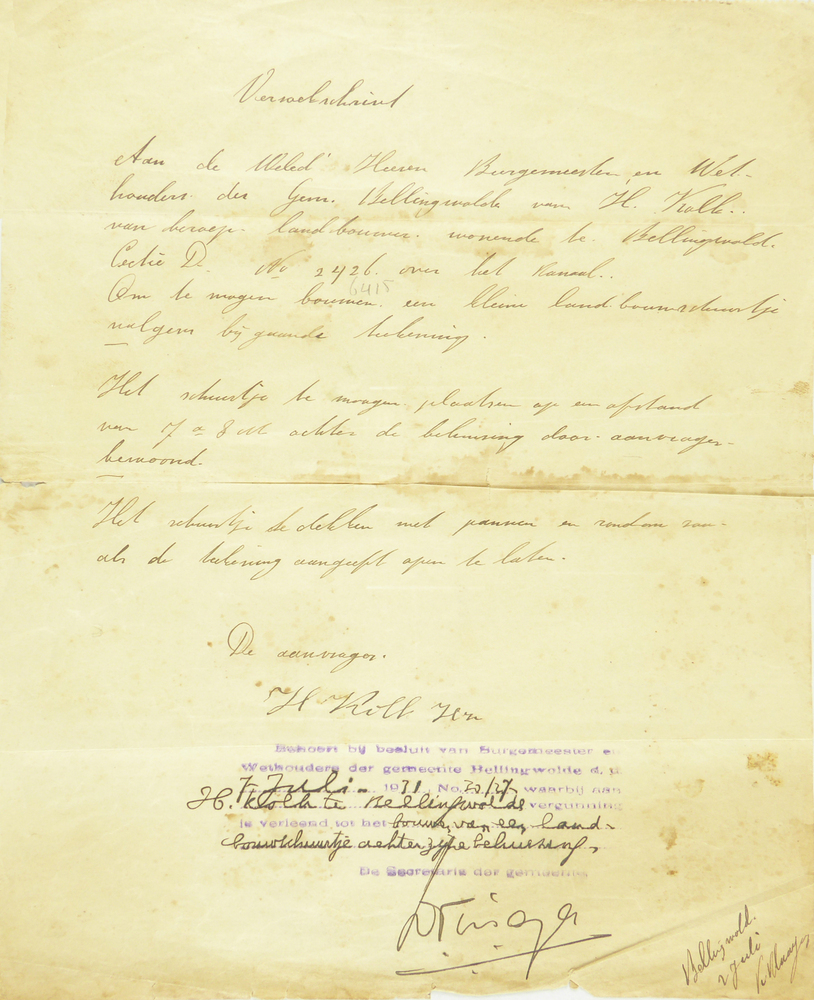 Verzoekschrift
Aan de WelEd Heeren Burgemeester en Wet-
houders der Gem. Bellingwolde van H. Kolk..
van beroep. landbouwer. wonende te. Bellingwold.
Sectie D. No 2426. over het kanaal..
6415
Om te mogen bouwen een kleine landbouwschuurtje
volgens bijgaande tekening.
Het schuurtje te mogen plaatsen op een afstand
van 7 a 8 M achter de behuising door aanvrager-
bewoond.
Het schuurtje te dekken met pannen en rondom zoo-
als de tekening aangeeft open te laten.
De aanvrager.
H Kolk Hzn
Behoort bij besluit van Burgemeester en
Wethouders der gemeente Bellingwolde d.d.
7 Juli 1931, No. 30/27, waarbij aan
H. Kolk te Bellingwolde vergunning
is verleend tot het bouwen van een land-
bouwschuurtje achter zijne behuizing,
De Secretaris der gemeente
Bellingwold.
2 Juli